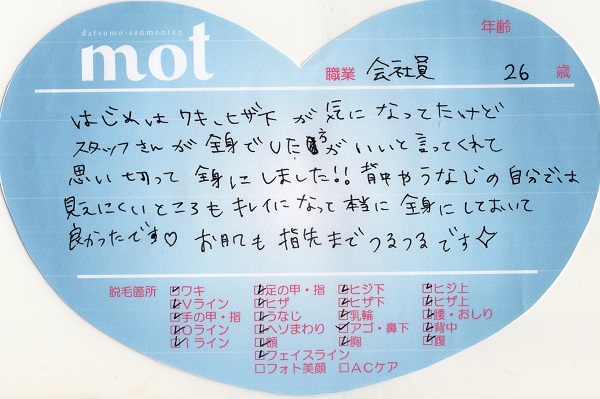 datsumo-senmonten
mot
年齢
職業 会社員 26 歳
はじめは ワキ、ヒザ下 が 気に なってたけど
スタッフさんが 全身でした方がいいと言ってくれて
思い切って 全身にしました!! 背中やうなじの自分では
見えにくいところも キレイになって本当に 全身にしておいて
良かったです♡ お肌も 指先までつるつるです☆
脱毛箇所 ☑ワキ ☑足の甲・指 ☑ヒジ下 ☑ヒジ上
☑Vライン ☑ヒザ ☑ヒザ下 ☑ヒザ上
☑手の甲・指 ☑うなじ ☑乳輪 ☑腰・おしり
☑Oライン ☑ヘソまわり ☑アゴ・鼻下 ☑背中
☑Iライン ☑顔 ☑胸 ☑腹
☑フェイスライン
□フォト美顔 □ACケア